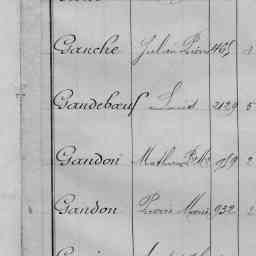 Ganche Julien Pierre 465
Gandebœuf Louis 2129 5
Gandon Mathurin 2
Gandon Pierre Marie 932 2